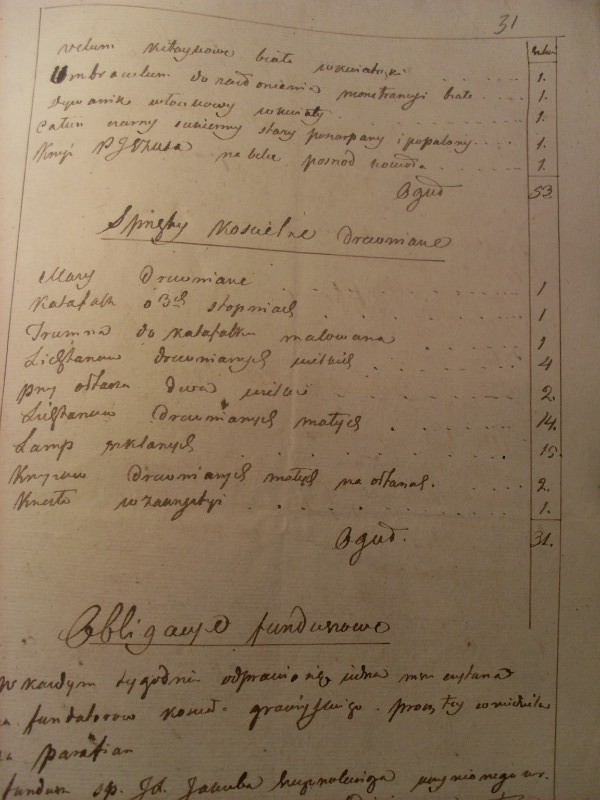 31
velum kitaykowe białe w kwiatki 1.
Umbraculum do zasłonienia monstrancyi białe 1.
dywanik włoczkowy w kwiaty 1.
Całun czarny sukienny stary potarpany i popalony 1.
Krzyż P Jezusa na belce posrod koscioła 1.
Oguł 53.
Sprzęty Koscielne drewniane
Mary Drewniane 1
Katafalk o 3ch stopniach 1
Trumna do katafalku malowana 1
Lichtarzow drewnianych wielkich 4
przy ołtarzu dwa wielkie 2.
Lichtarzow Drewnianych małych 14.
Lamp szklanych 15.
Krzyzow Drewnianych małych na ołtarzach. 2.
Krzesło w zakrystyi 1.
Oguł. 31.
Obligacye funduszowe
W kazdym tygodniu odprawia się jedna msza czytana
fundatorow koscioła. przez trzy niedziele
za parafian
fundusz sp. Jd. Jakuba uczynionego w r.